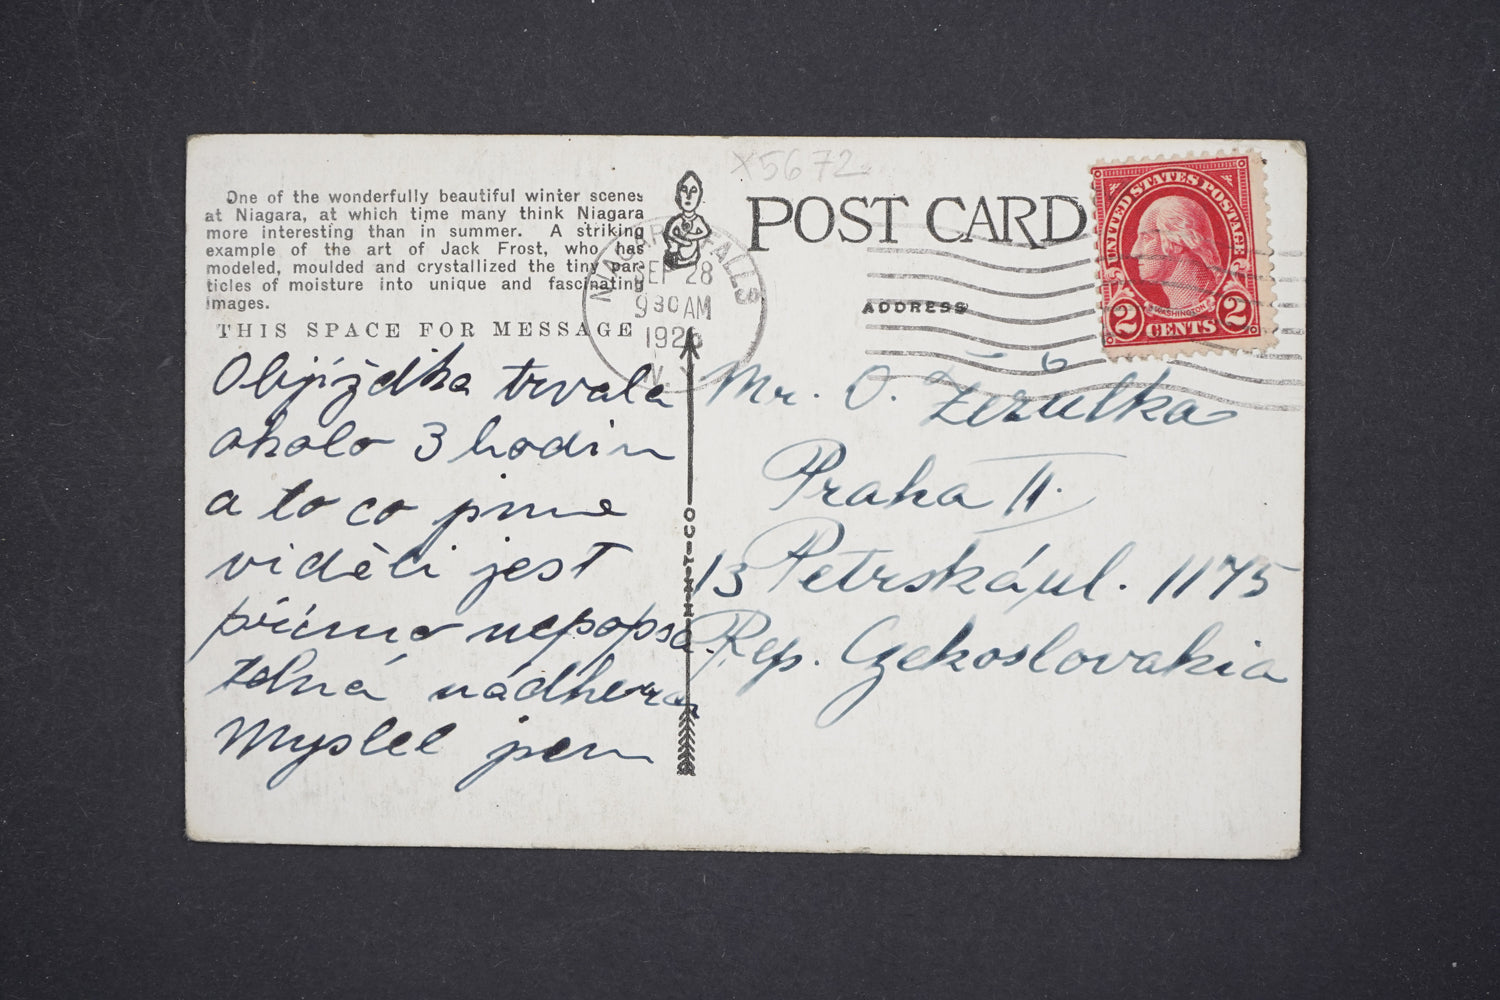 One of the wonderfully beautiful winter scenes
at Niagara, at which time many think Niagara
more interesting than in summer. A striking
example of the art of Jack Frost, who has
modeled, moulded and crystallized the tiny par-
ticles of moisture into unique and fascinating
images.
THIS SPACE FOR MESSAGE
Objížďka trvala
okolo 3 hodin
a to co jsme
viděli jest
přímo nepopsa-
telná nádhera
Myslel jsem
X5672
POST CARD
ADDRESS
NIAGARA FALLS
SEP 28
930 AM
N.Y.
UNITED STATES POSTAGE
WASHINGTON
2 CENTS 2
Mr. O. Žežulka
Praha II.
13 Petrská ul. 1175
Rep. Czekoslovakia